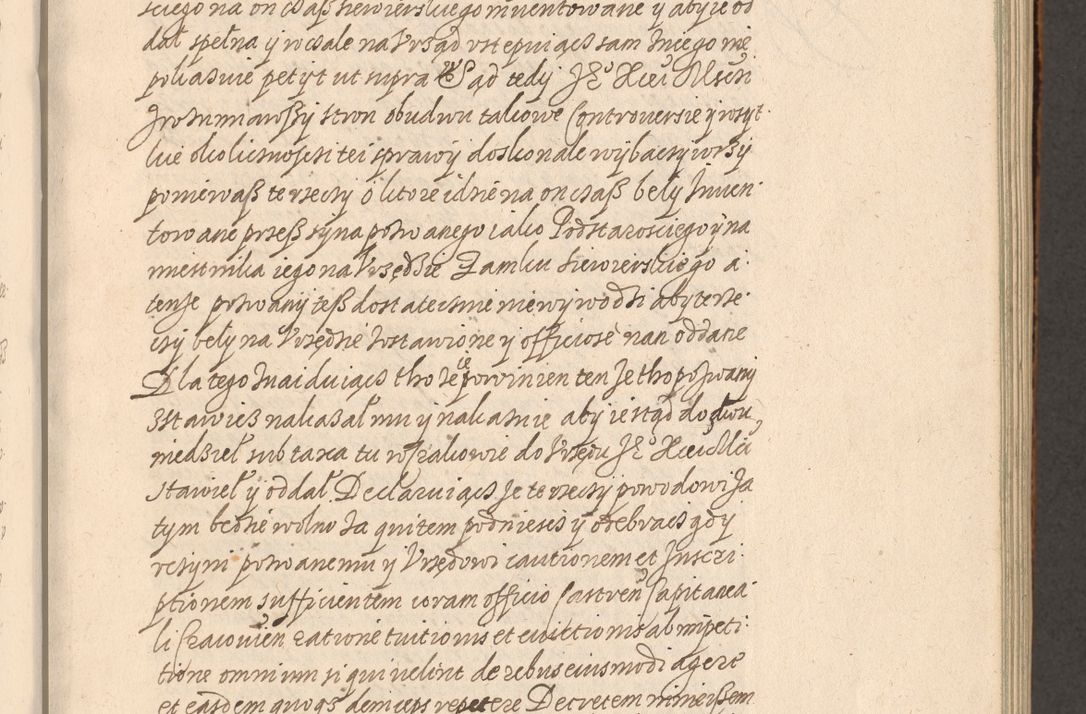 sciego na on czaß siewierskiego inuentowane y aby ie od
dał spełna y wcale na Vrząd vstępuiącz sam Inszego nie
pokaznie petyt ut supra Sąd tedy Je° Xcei Mczi
Zrozumiawszy stron obudwu takowe Controuersie y wszyt
kie okolicznosci tei sprawy doskonale wybaczywszy
poniewasz te rzeczy o ktore idzie na on czasz beły Inuen
towane przesz syna pozwanego iako Podstarosciego y na
miestnika iego na Vrzędzie Zamku Siewierskiego a
tenze pozwany tesz dostatecznie nie wywodzi aby te rze
czy beły na Vrzędzie zostawione y officiose nan oddane
Dla tego Znaiduiącz tho ze ie powinien ten ze tho pozwany
zstawicz nakazał mu y nakaznie aby ie stąd do dwu
niedziel sub taxa tu w Krakowie do Vrzędu Je° Xcei Mci
stawieł y oddał Declaruiącz ze te rzeczy powodowi za
tym będzie wolno za quitem podniescz y odebracz gdy
vczyni pozwanemu y Vrzędowi cautionem et Inscri
ptionem sufficientem coram officio Castren Capitanea
li Cracouien ratione tuitionis et euictionis ab impeti
tione omnium si qui uelint de rebus eiusmodi agere
et easdem quoqs deinceps repetere Decretem ninieissem